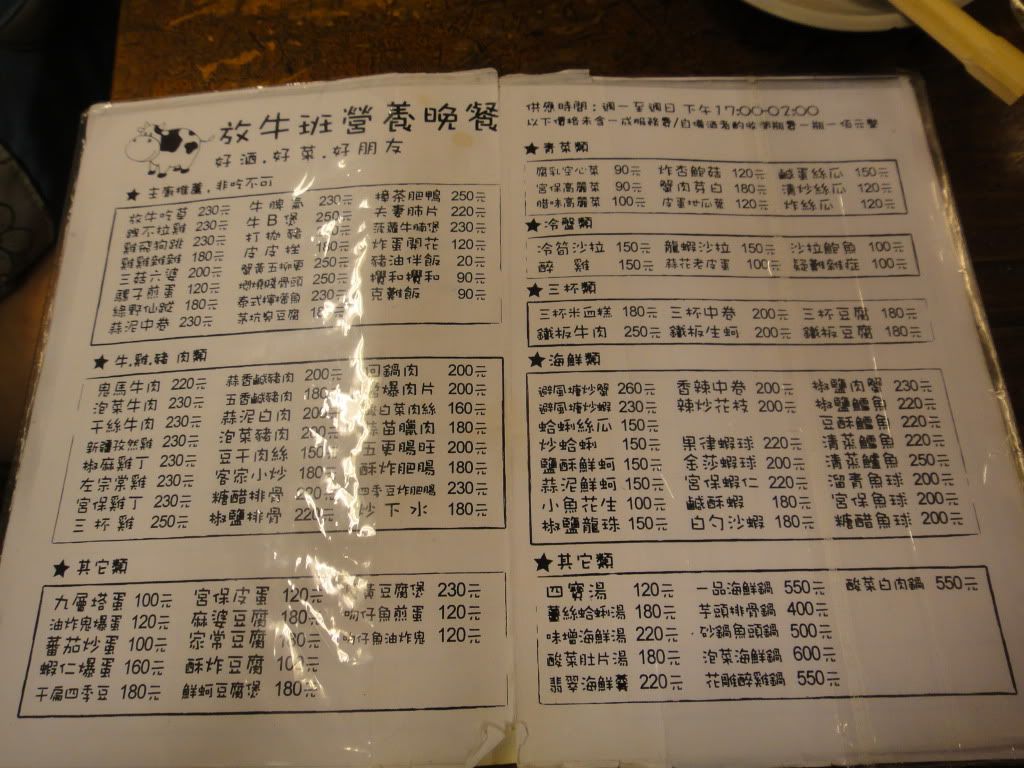 放牛班營養晚餐
好酒.好菜.好朋友
★ 主廚推薦,非吃不可
放牛吃草 230元 牛脾氣 230元 樟茶肥鴨 250元
餓不拉雞 230元 牛B煲 250元 夫妻肺片 220元
雞飛狗跳 230元 打拋豬 菠蘿牛腩煲 230元
雞雞雞雞 180元 皮皮挫 180元 炸蛋開花 120元
三菇六婆 200元 蟹黃五柳 250元 豬油伴飯 20元
騾子煎蛋 120元 燃燒賤骨頭 250元 攪和攪和 90元
綠野仙蹤 180元 泰式檸檬魚 230元 克難飯 90元
蒜泥中卷 230元 茅坑臭豆腐 180元
★ 牛.雞.豬 肉類
鬼馬牛肉 220元 蒜香鹹豬肉 200元 回鍋肉 200元
泡菜牛肉 230元 五香鹹豬肉 180元 爆肉片 200元
干絲牛肉 230元 蒜泥白肉 200元 酸白菜肉絲 160元
新疆孜然雞 230元 泡菜豬肉 200元 蒜苗臘肉 180元
椒麻雞丁 230元 豆干肉絲 150元 五更腸旺 200元
左宗棠雞 230元 客家小炒 180元 酥炸肥腸 180元
宮保雞丁 230元 糖醋排骨 四季豆炸肥腸 230元
三杯雞 250元 椒鹽排骨 220元 炒下水 180元
★ 其它類
九層塔蛋 100元 宮保皮蛋 120元 黃豆腐煲 230元
油炸鬼爆蛋 120元 麻婆豆腐 180元 吻仔魚煎蛋 120元
蕃茄炒蛋 100元 家常豆腐 180元 吻仔魚油炸鬼 120元
蝦仁爆蛋 160元 酥炸豆腐 100元
干扁四季豆 180元 鮮蚵豆腐煲 180元
供應時間:週一至週日 下午17:00-02:00
以下價格未含一成服務費/自備酒者酌收開瓶費一瓶一佰元整
★ 青菜類
腐乳空心菜 90元 炸杏鮑菇 120元 鹹蛋絲瓜 150元
宮保高麗菜 90元 蟹肉芽白 180元 清炒絲瓜 120元
腊味高麗菜 100元 皮蛋地瓜葉 120元 炸絲瓜 120元
★ 冷盤類
冷筍沙拉 150元 龍蝦沙拉 150元 沙拉鮑魚 100元
醉雞 150元 蒜花老皮蛋 100元 疑難雜症 100元
★ 三杯類
三杯米血糕 180元 三杯中卷 200元 三杯豆腐 180元
鐵板牛肉 250元 鐵板生蚵 200元 鐵板豆腐 180元
★ 海鮮類
避風塘炒蟹 260元 香辣中卷 200元 椒鹽肉蟹 230元
避風塘炒蝦 230元 辣炒花枝 200元 椒鹽鱈魚 220元
蛤蜊絲瓜 150元 豆酥鱈魚 220元
炒蛤蜊 150元 果律蝦球 220元 清蒸鱈魚 220元
鹽酥鮮蚵 150元 金莎蝦球 200元 清蒸鱸魚 250元
蒜泥鮮蚵 150元 宮保蝦仁 220元 溜青魚球 200元
小魚花生 100元 鹹酥蝦 180元 宮保魚球 200元
椒鹽龍珠 150元 白勺沙蝦 180元 糖醋魚球 200元
★ 其它類
四寶湯 120元 一品海鮮鍋 550元 酸菜白肉鍋 550元
薑絲蛤蜊湯 180元 芋頭排骨鍋 400元
味增海鮮湯 220元 砂鍋魚頭鍋 500元
酸菜肚片湯 180元 泡菜海鮮鍋 600元
翡翠海鮮羹 220元 花雕醉雞鍋 550元